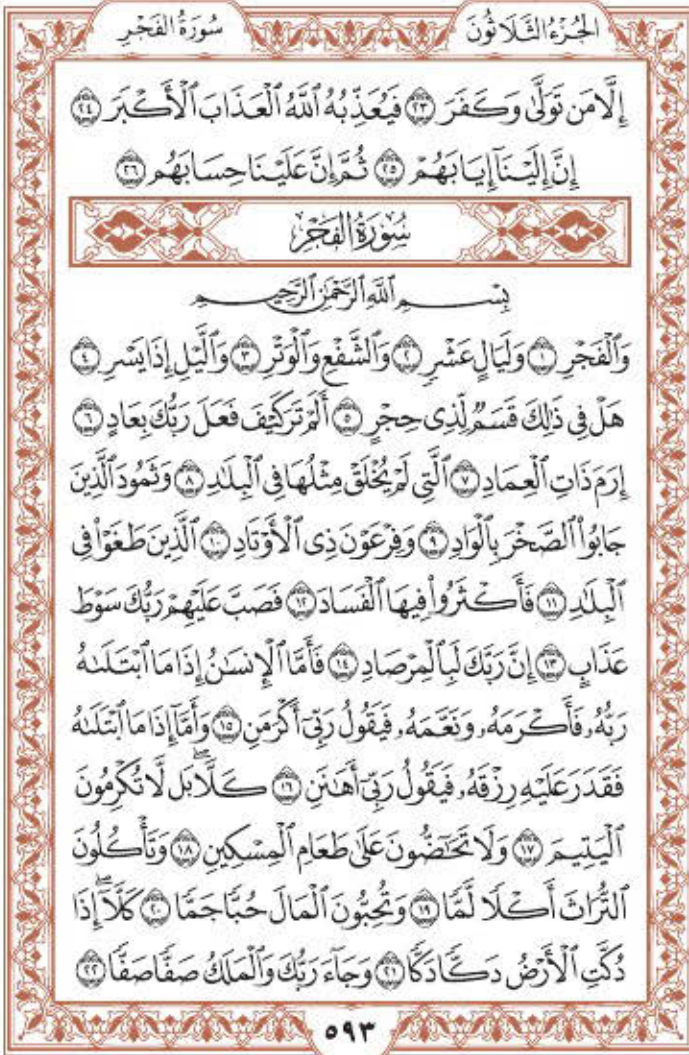 سُورَةُ الْفَجْرِ
الجُزْءُ الثَّلَاثُونَ
إِلَّا مَن تَوَلَّىٰ وَكَفَرَ ٢٣ فَيُعَذِّبُهُ ٱللَّهُ ٱلْعَذَابَ ٱلْأَكْبَرَ ٢٤
إِنَّ إِلَيْنَآ إِيَابَهُمْ ٢٥ ثُمَّ إِنَّ عَلَيْنَا حِسَابَهُم ٢٦
سُورَةُ الفَجْرِ
بِسْمِ ٱللَّهِ ٱلرَّحْمَٰنِ ٱلرَّحِيمِ
وَٱلْفَجْرِ ١ وَلَيَالٍ عَشْرٍ ٢ وَٱلشَّفْعِ وَٱلْوَتْرِ ٣ وَٱلَّيْلِ إِذَا يَسْرِ ٤
هَلْ فِى ذَٰلِكَ قَسَمٌ لِّذِى حِجْرٍ ٥ أَلَمْ تَرَ كَيْفَ فَعَلَ رَبُّكَ بِعَادٍ ٦
إِرَمَ ذَاتِ ٱلْعِمَادِ ٧ ٱلَّتِى لَمْ يُخْلَقْ مِثْلُهَا فِى ٱلْبِلَٰدِ ٨ وَثَمُودَ ٱلَّذِينَ
جَابُوا۟ ٱلصَّخْرَ بِٱلْوَادِ ٩ وَفِرْعَوْنَ ذِى ٱلْأَوْتَادِ ١٠ ٱلَّذِينَ طَغَوْا۟ فِى
ٱلْبِلَٰدِ ١١ فَأَكْثَرُوا۟ فِيهَا ٱلْفَسَادَ ١٢ فَصَبَّ عَلَيْهِمْ رَبُّكَ سَوْطَ
عَذَابٍ ١٣ إِنَّ رَبَّكَ لَبِٱلْمِرْصَادِ ١٤ فَأَمَّا ٱلْإِنسَٰنُ إِذَا مَا ٱبْتَلَىٰهُ
رَبُّهُۥ فَأَكْرَمَهُۥ وَنَعَّمَهُۥ فَيَقُولُ رَبِّىٓ أَكْرَمَنِ ١٥ وَأَمَّآ إِذَا مَا ٱبْتَلَىٰهُ
فَقَدَرَ عَلَيْهِ رِزْقَهُۥ فَيَقُولُ رَبِّىٓ أَهَٰنَنِ ١٦ كَلَّا ۖ بَل لَّا تُكْرِمُونَ
ٱلْيَتِيمَ ١٧ وَلَا تَحَٰٓضُّونَ عَلَىٰ طَعَامِ ٱلْمِسْكِينِ ١٨ وَتَأْكُلُونَ
ٱلتُّرَاثَ أَكْلًا لَّمًّا ١٩ وَتُحِبُّونَ ٱلْمَالَ حُبًّا جَمًّا ٢٠ كَلَّآ ۖ إِذَا
دُكَّتِ ٱلْأَرْضُ دَكًّا دَكًّا ٢١ وَجَآءَ رَبُّكَ وَٱلْمَلَكُ صَفًّا صَفًّا ٢٢
٥٩٣